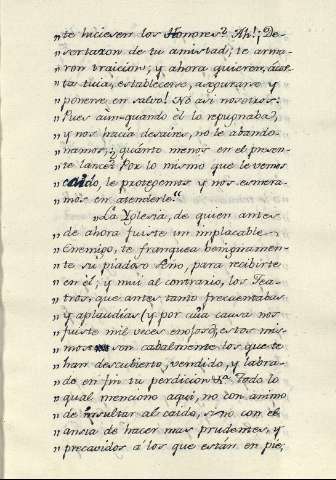 " te hiciesen los Honores? Ah!¡ De-
" sertaron de tu amistad; te arma-
" ron traicion; y ahora quieren, á cos-
" ta tuia, establecerse, asegurarse y
" ponerse en salvo! No asi nosotros:
" Pues aún quando él lo repugnaba,
" y nos hacia desaires, no le abando-
" namos; ¿quánto menos en el presen-
" te lance? Por lo mismo que le vemos
" caído, le protegemos y nos esmera-
" mos en atenderle."
" La Yglesia, de quien antes
" de ahora fuiste un implacable
" Enemigo, te franquea benignamen-
" te su piadoso seno, para recibirte
" en él; y mui al contrario, los Tea-
" tros que antes tanto frecuentabas
" y aplaudias (y por cuia causa nos
" fuiste mil veces enojoso) estos mis-
" mos son cabalmente los que te
" han descubierto, vendido, y labra-
" do en fin tu perdicion &a. Todo lo
" qual menciono aqui, no con animo
" de insultar al caido, sino con el
" ansia de hacer mas prudentes, y
" precavidos á los que están en pie;